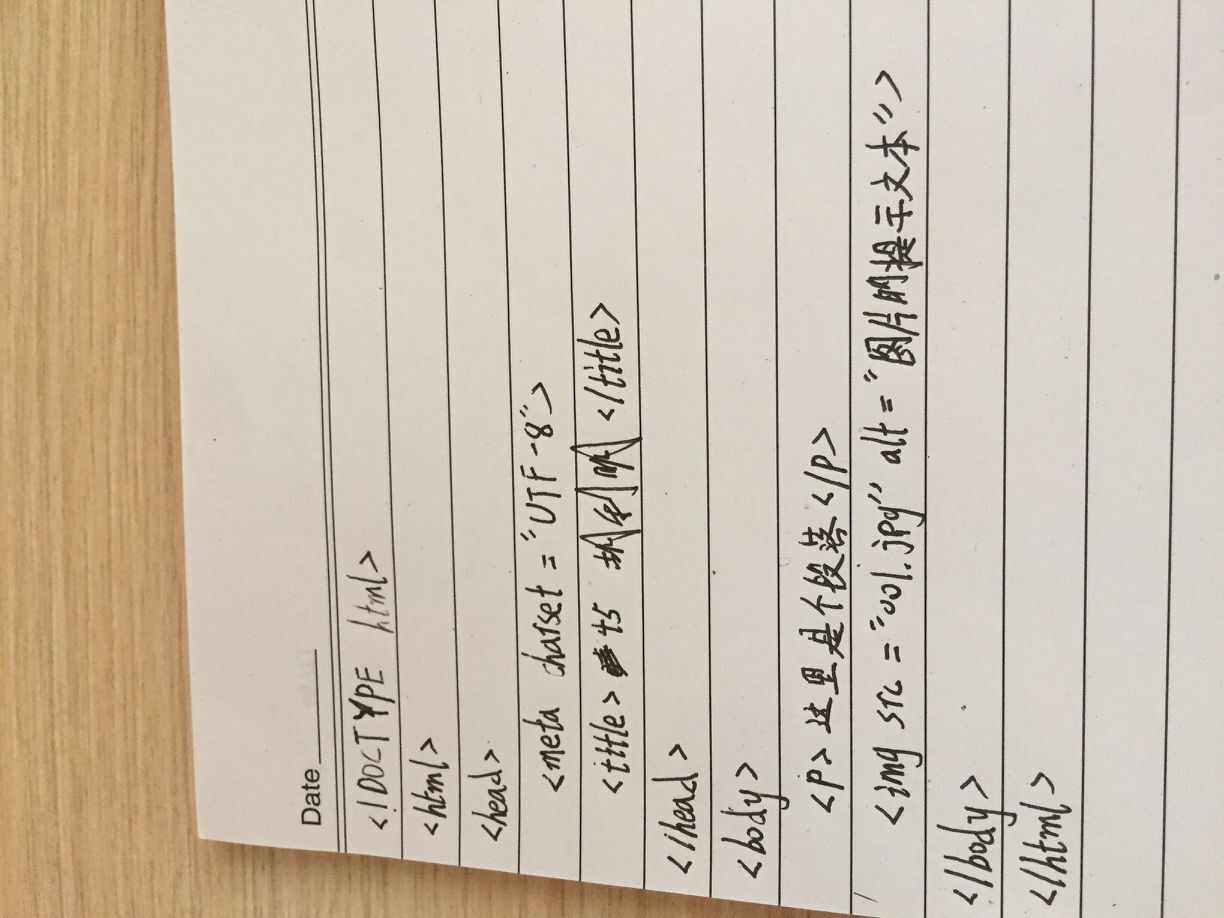 Date
<!DOCTYPE html>
<html>
<head>
<meta charset="UTF-8">
<title> 45 </title>
</head>
<body>
<p>这里是个段落</p>
<img src="001.jpg" alt="图片的提示文本">
</body>
</html>